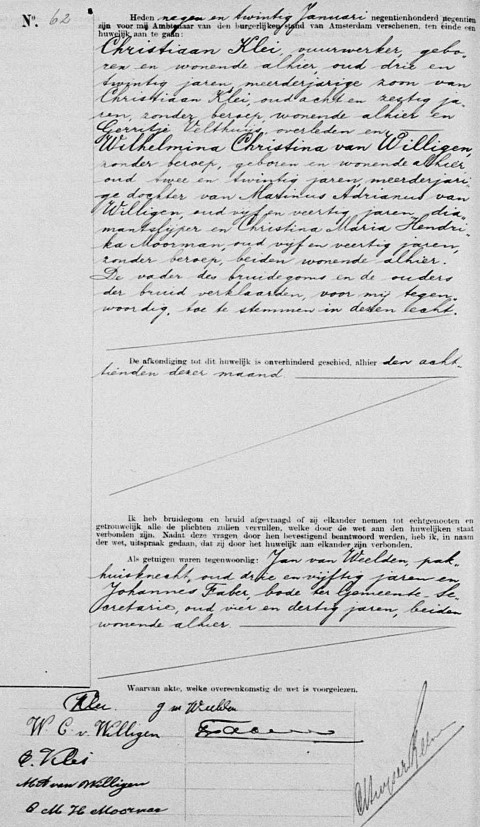 No. 62
Heden negen en twintig Januari negentienhonderd negentien
zijn voor mij Ambtenaar van den burgerlijken stand van Amsterdam verschenen, ten einde een
huwelijk aan te gaan:
Christiaan Klei, vuurwerker, gebo-
ren en wonende alhier, oud drie en
twintig jaren, meerderjarige zoon van
Christiaan Klei, oud acht en zestig ja-
ren, zonder beroep, wonende alhier en
Gerritje Velthuis, overleden en
Wilhelmina Christina van Willigen,
zonder beroep, geboren en wonende alhier
oud twee en twintig jaren, meerderjari-
ge dochter van Marinus Adrianus van
Willigen, oud vijf en veertig jaren, dia-
mantslijper en Christina Maria Hendri-
ka Moorman, oud vijf en veertig jaren,
zonder beroep, beiden wonende alhier.
De vader des bruidegoms en de ouders
der bruid verklaarden, voor mij tegen-
woordig, toe te stemmen in dezen echt.
De afkondiging tot dit huwelijk is onverhinderd geschied, alhier den acht-
tienden dezer maand
Ik heb bruidegom en bruid afgevraagd of zij elkander nemen tot echtgenooten en
getrouwelijk alle de plichten zullen vervullen, welke door de wet aan den huwelijken staat
verbonden zijn. Nadat deze vragen door hen bevestigend beantwoord werden, heb ik, in naam
der wet, uitspraak gedaan, dat zij door het huwelijk aan elkander zijn verbonden.
Als getuigen waren tegenwoordig: Jan van Weelden, pak-
huisknecht, oud drie en vijftig jaren en
Johannes Faber, bode ter Gemeente-Se-
cretarie, oud vier en dertig jaren, beiden
wonende alhier.
Waarvan akte, welke overeenkomstig de wet is voorgelezen.
Klei J v Weelden
W. C. v. Willigen Faber
C. Klei
M A van Willigen
C M H Moorman